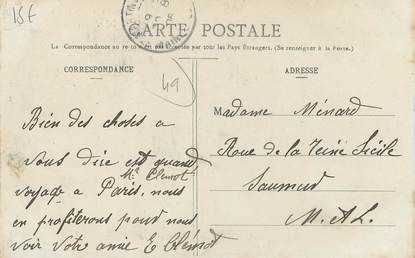 15E
CARTE POSTALE
La Correspondance au recto n'est pas acceptée par tous les Pays Étrangers. (Se renseigner à la Poste.)
CORRESPONDANCE
Bien des choses a
vous dire est quand
Mr Clémot
voyage a Paris, nous
en profiterons pour nous
voir votre amie E Clémot
49
ADRESSE
Madame Ménard
Roue de la Reine Sicile
Saumur
M. & L.